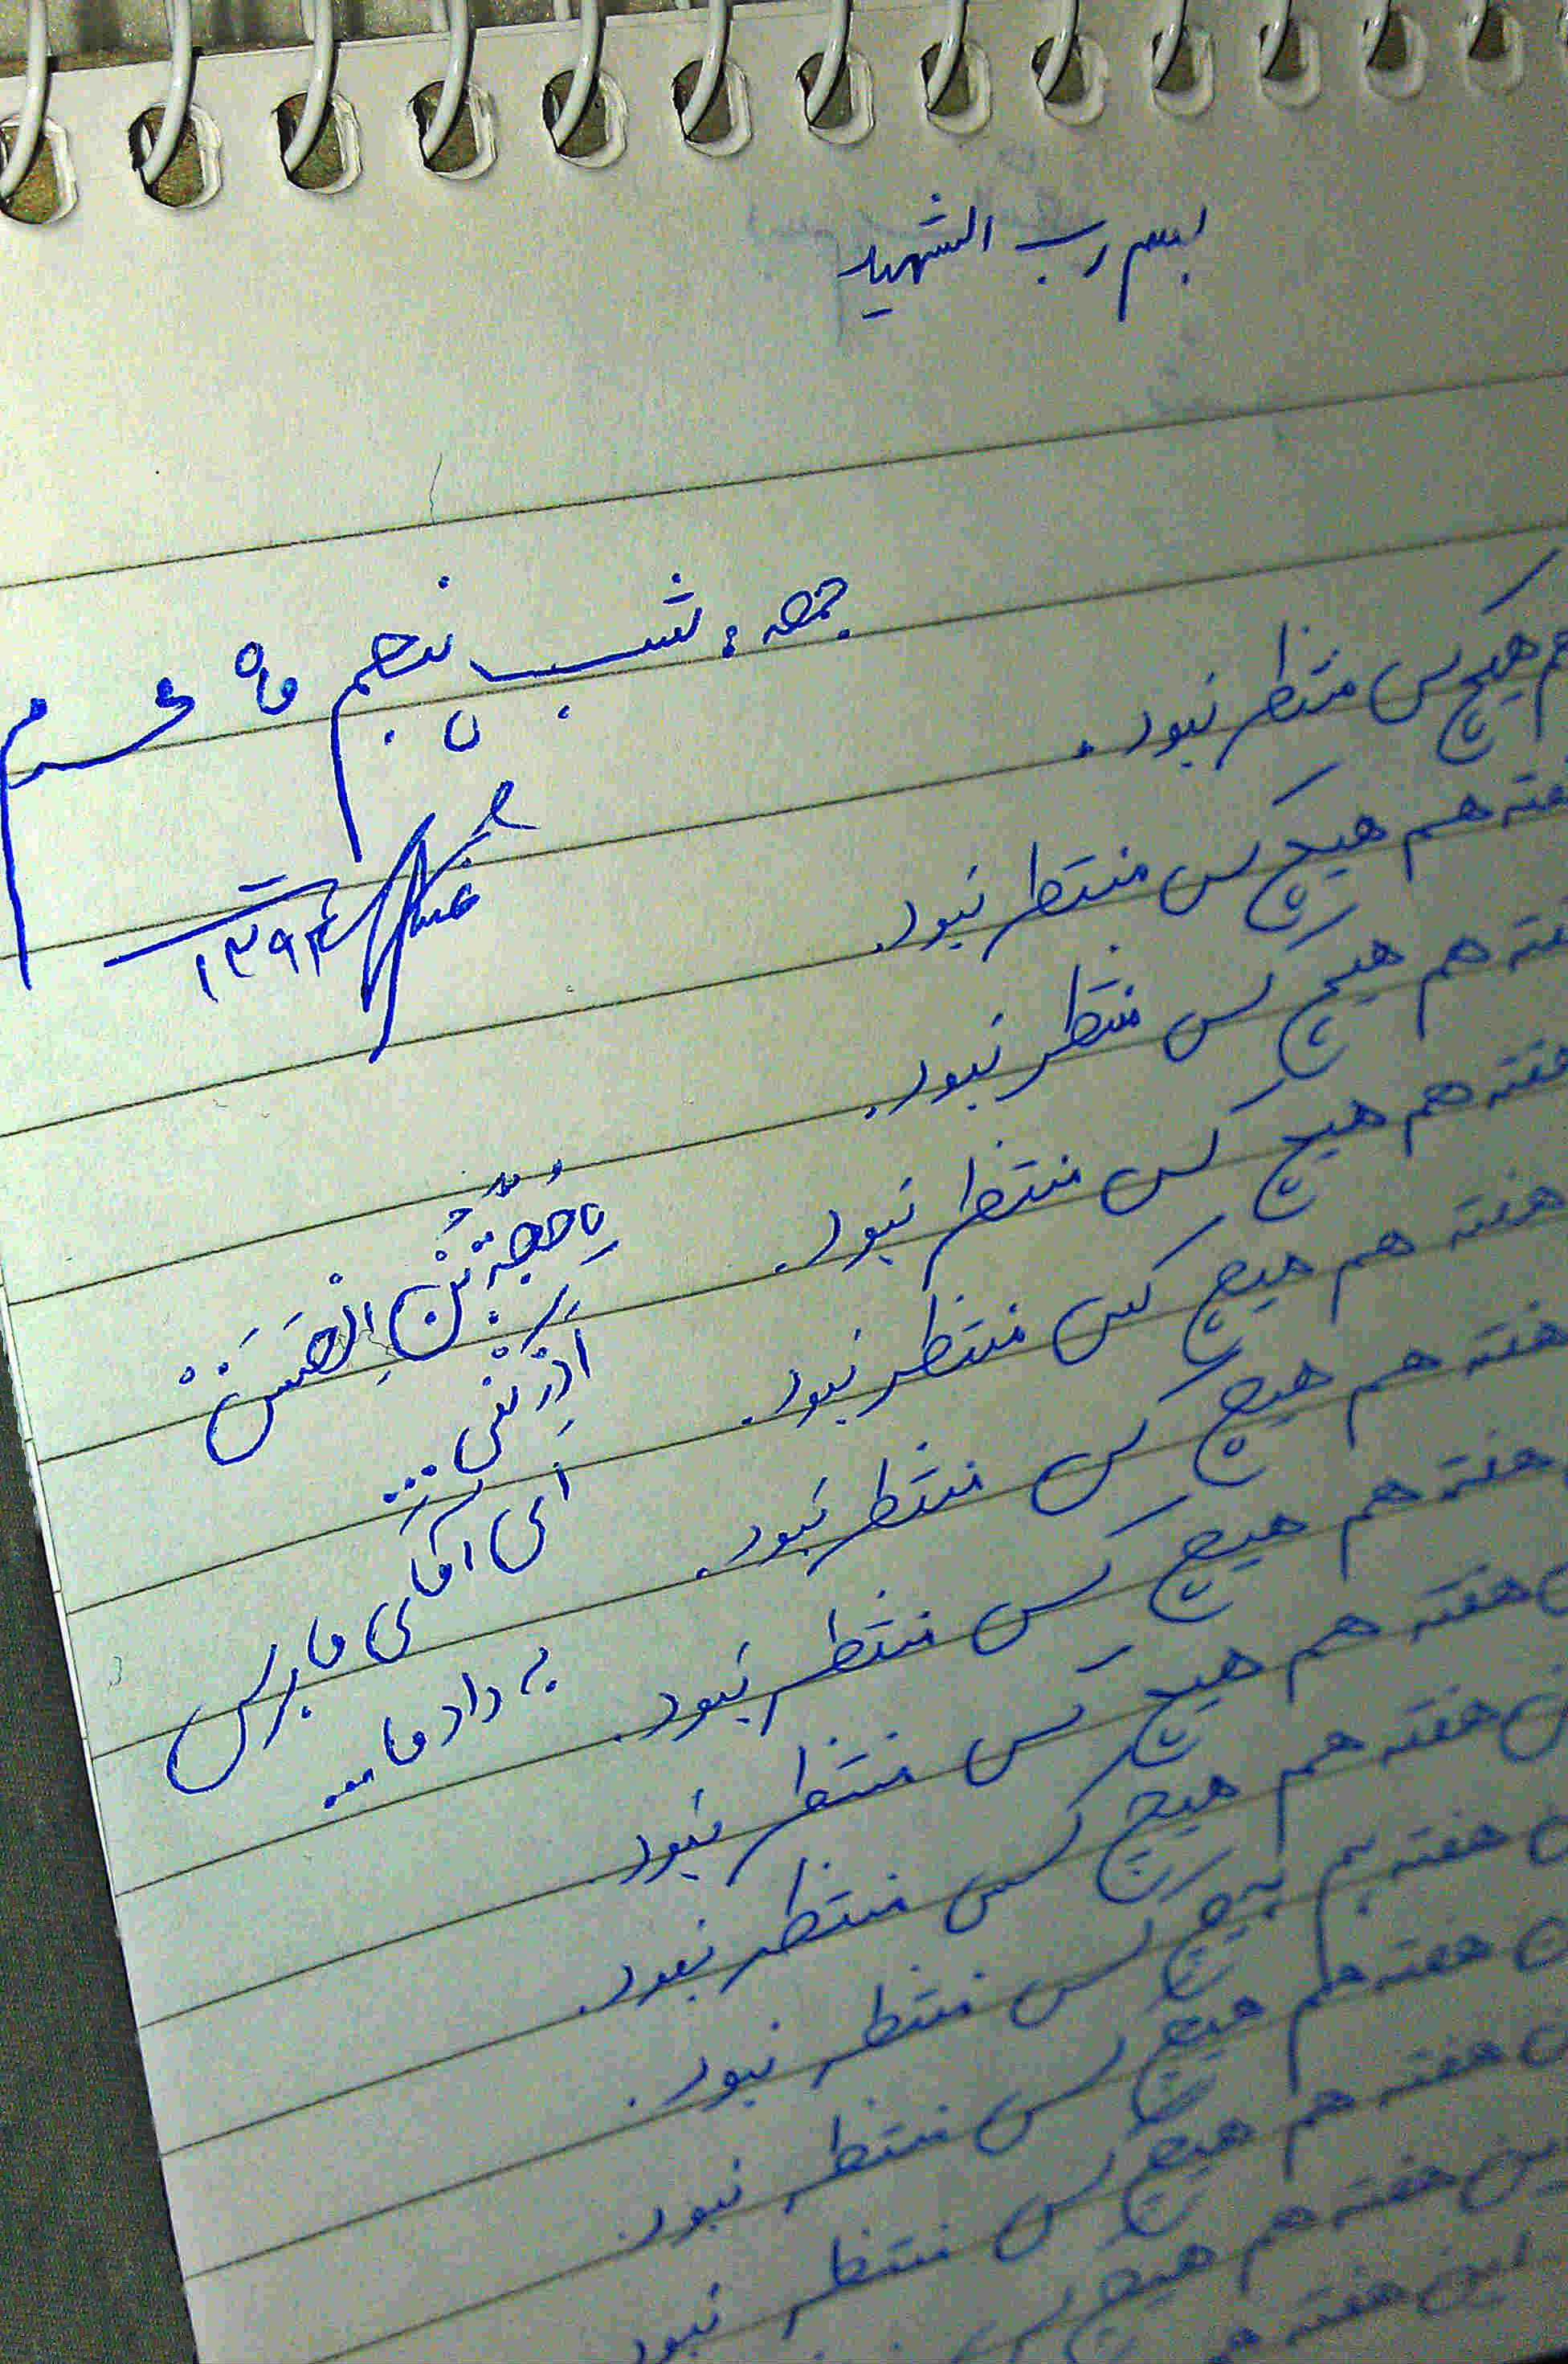 بسم رب الشهید
جمعه، شب پنجم ماه محرم
۱۳۹۳
هیچ کس منتظر نبود.
هم هیچ کس منتظر نبود.
هم هیچ کس منتظر نبود.
هفته هم هیچ کس منتظر نبود.
هفته هم هیچ کس منتظر نبود.
هفته هم هیچ کس منتظر نبود.
هفته هم هیچ کس منتظر نبود.
هفته هم هیچ کس منتظر نبود.
هفته هم هیچ کس منتظر نبود.
هفته هم هیچ کس منتظر نبود.
هفته هم هیچ کس منتظر نبود.
هفته هم هیچ کس منتظر نبود
این هفته هم هیچ
این هفته
یا حُجَّةَ بْنَ الْحَسَنْ
اَدْرِکْنی...
ای آقای ما برس
به داد ما...